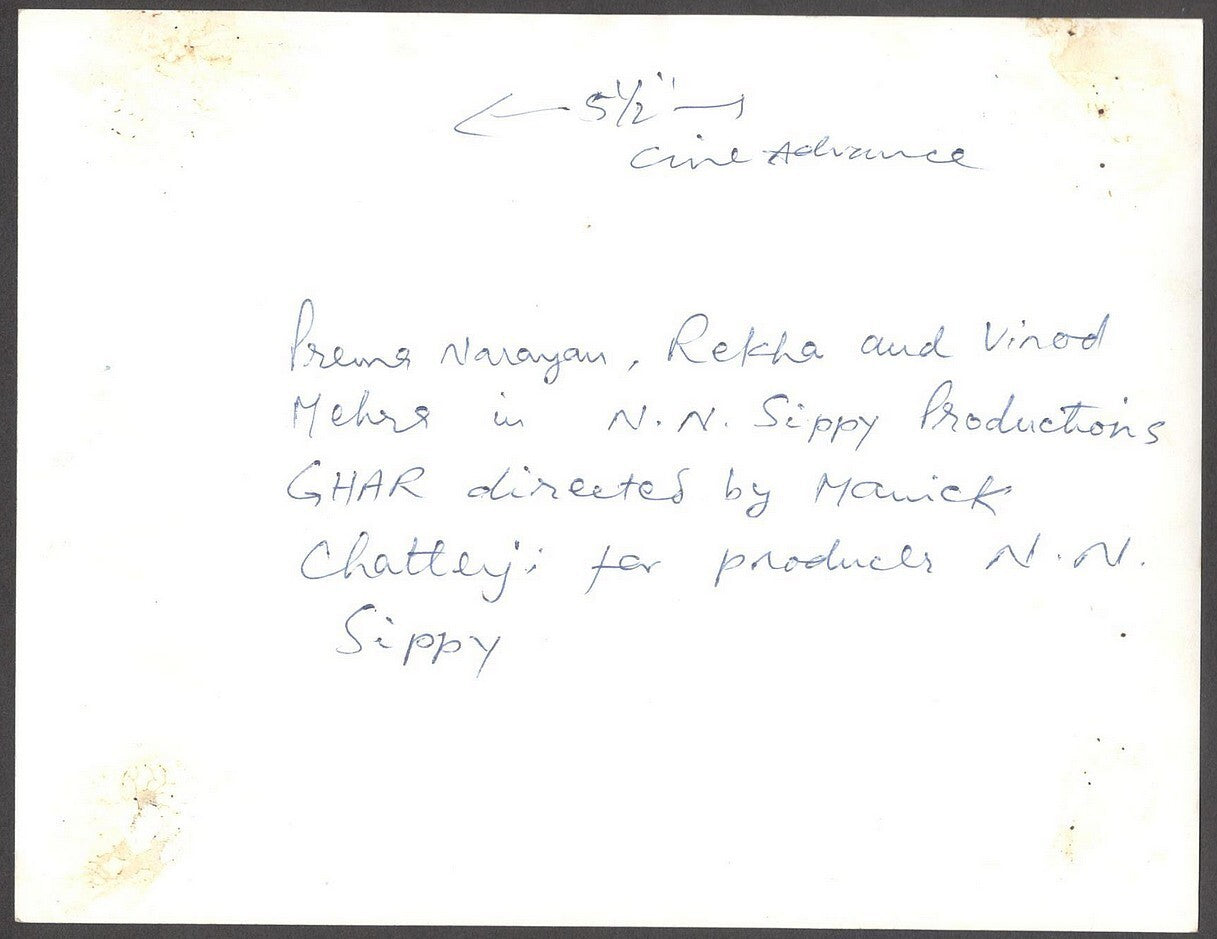 5½"
Cine Advance
Prema Narayan, Rekha and Vinod
Mehra in N.N. Sippy Productions
GHAR directed by Manick
Chatterji for producer N.N.
Sippy